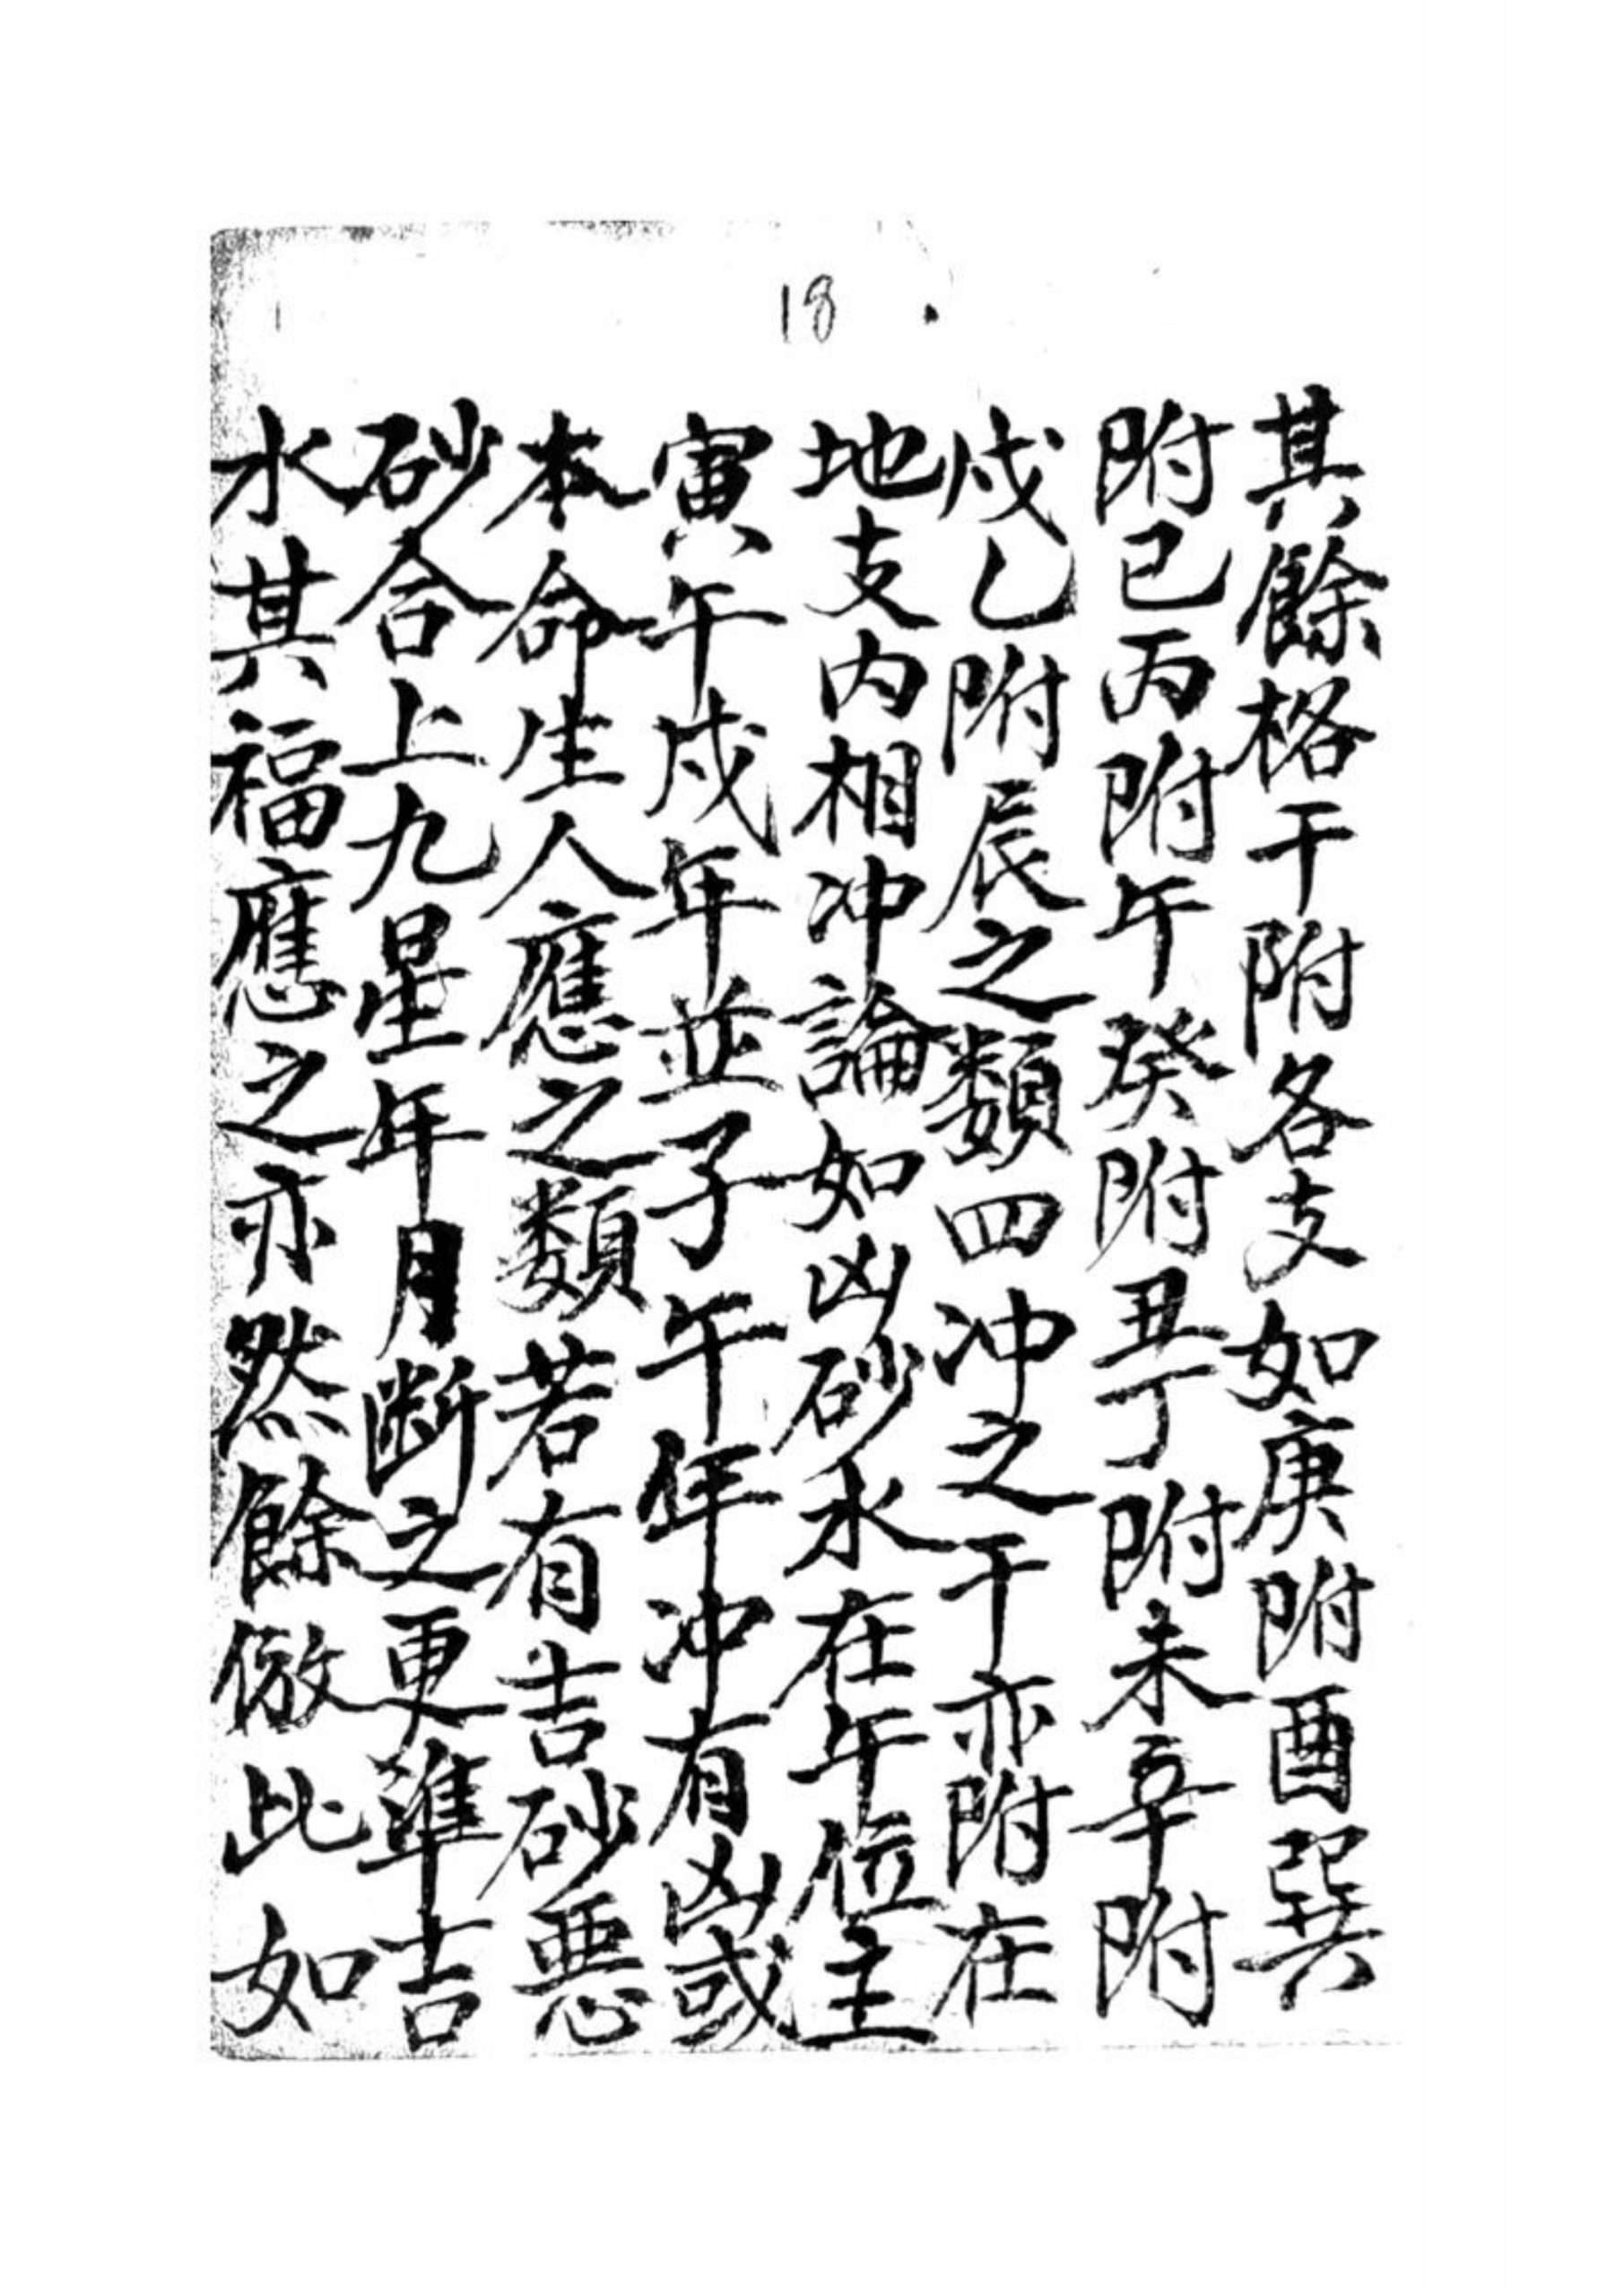 18
其餘格干附各支如庚附酉巽
附巳丙附午癸附丑丁附未辛附
戌乙附辰之類四冲之干亦附在
地支内相冲論如凶砂水在午位主
寅午戌年並子午年冲有凶或
本命生人應之類若有吉砂悪
砂合上九星年月断之更準吉
水其福應之亦然餘倣此如